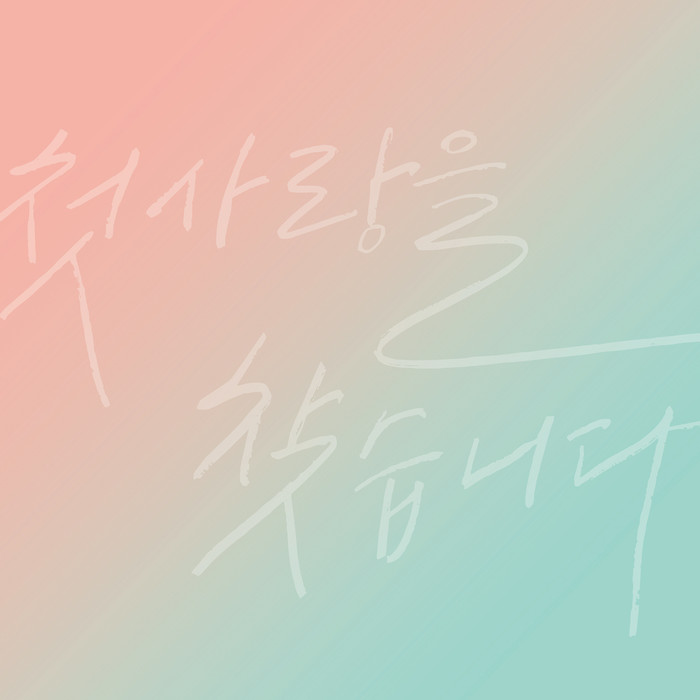 첫사랑을
찾습니다